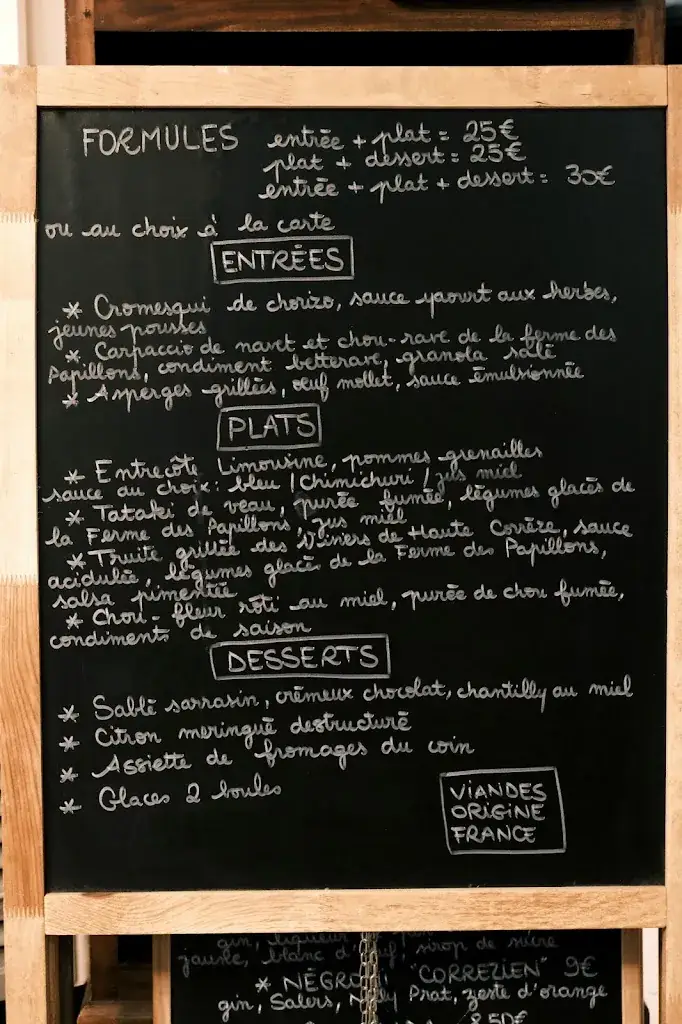 FORMULES entrée + plat = 25€
plat + dessert = 25€
entrée + plat + dessert = 30€
ou au choix à la carte
ENTRÉES
* Cromesqui de chorizo, sauce yaourt aux herbes,
jeunes pousses
* Carpaccio de navet et chou-rave de la ferme des
Papillons, condiment betterave, granola salé
* Asperges grillées, œuf mollet, sauce émulsionnée
PLATS
* Entrecôte Limousine, pommes grenailles
sauce au choix : bleu / Chimichuri / jus miel
* Tataki de veau, purée fumée, légumes glacés de
la Ferme des Papillons, jus miel
* Truite grillée des Viviers de Haute Corrèze, sauce
acidulée, légumes glacés de la Ferme des Papillons,
salsa pimentée
* Chou-fleur rôti au miel, purée de chou fumée,
condiments de saison
DESSERTS
* Sablé sarrasin, crémeux chocolat, chantilly au miel
* Citron meringué destructuré
* Assiette de fromages du coin
* Glaces 2 boules
VIANDES
ORIGINE
FRANCE
gin, liqueur
jaune, blanc d'œuf, sirop de sucre
* NÉGRONI "CORREZIEN" 9€
gin, Salers, Prat, zeste d'orange
8,50€